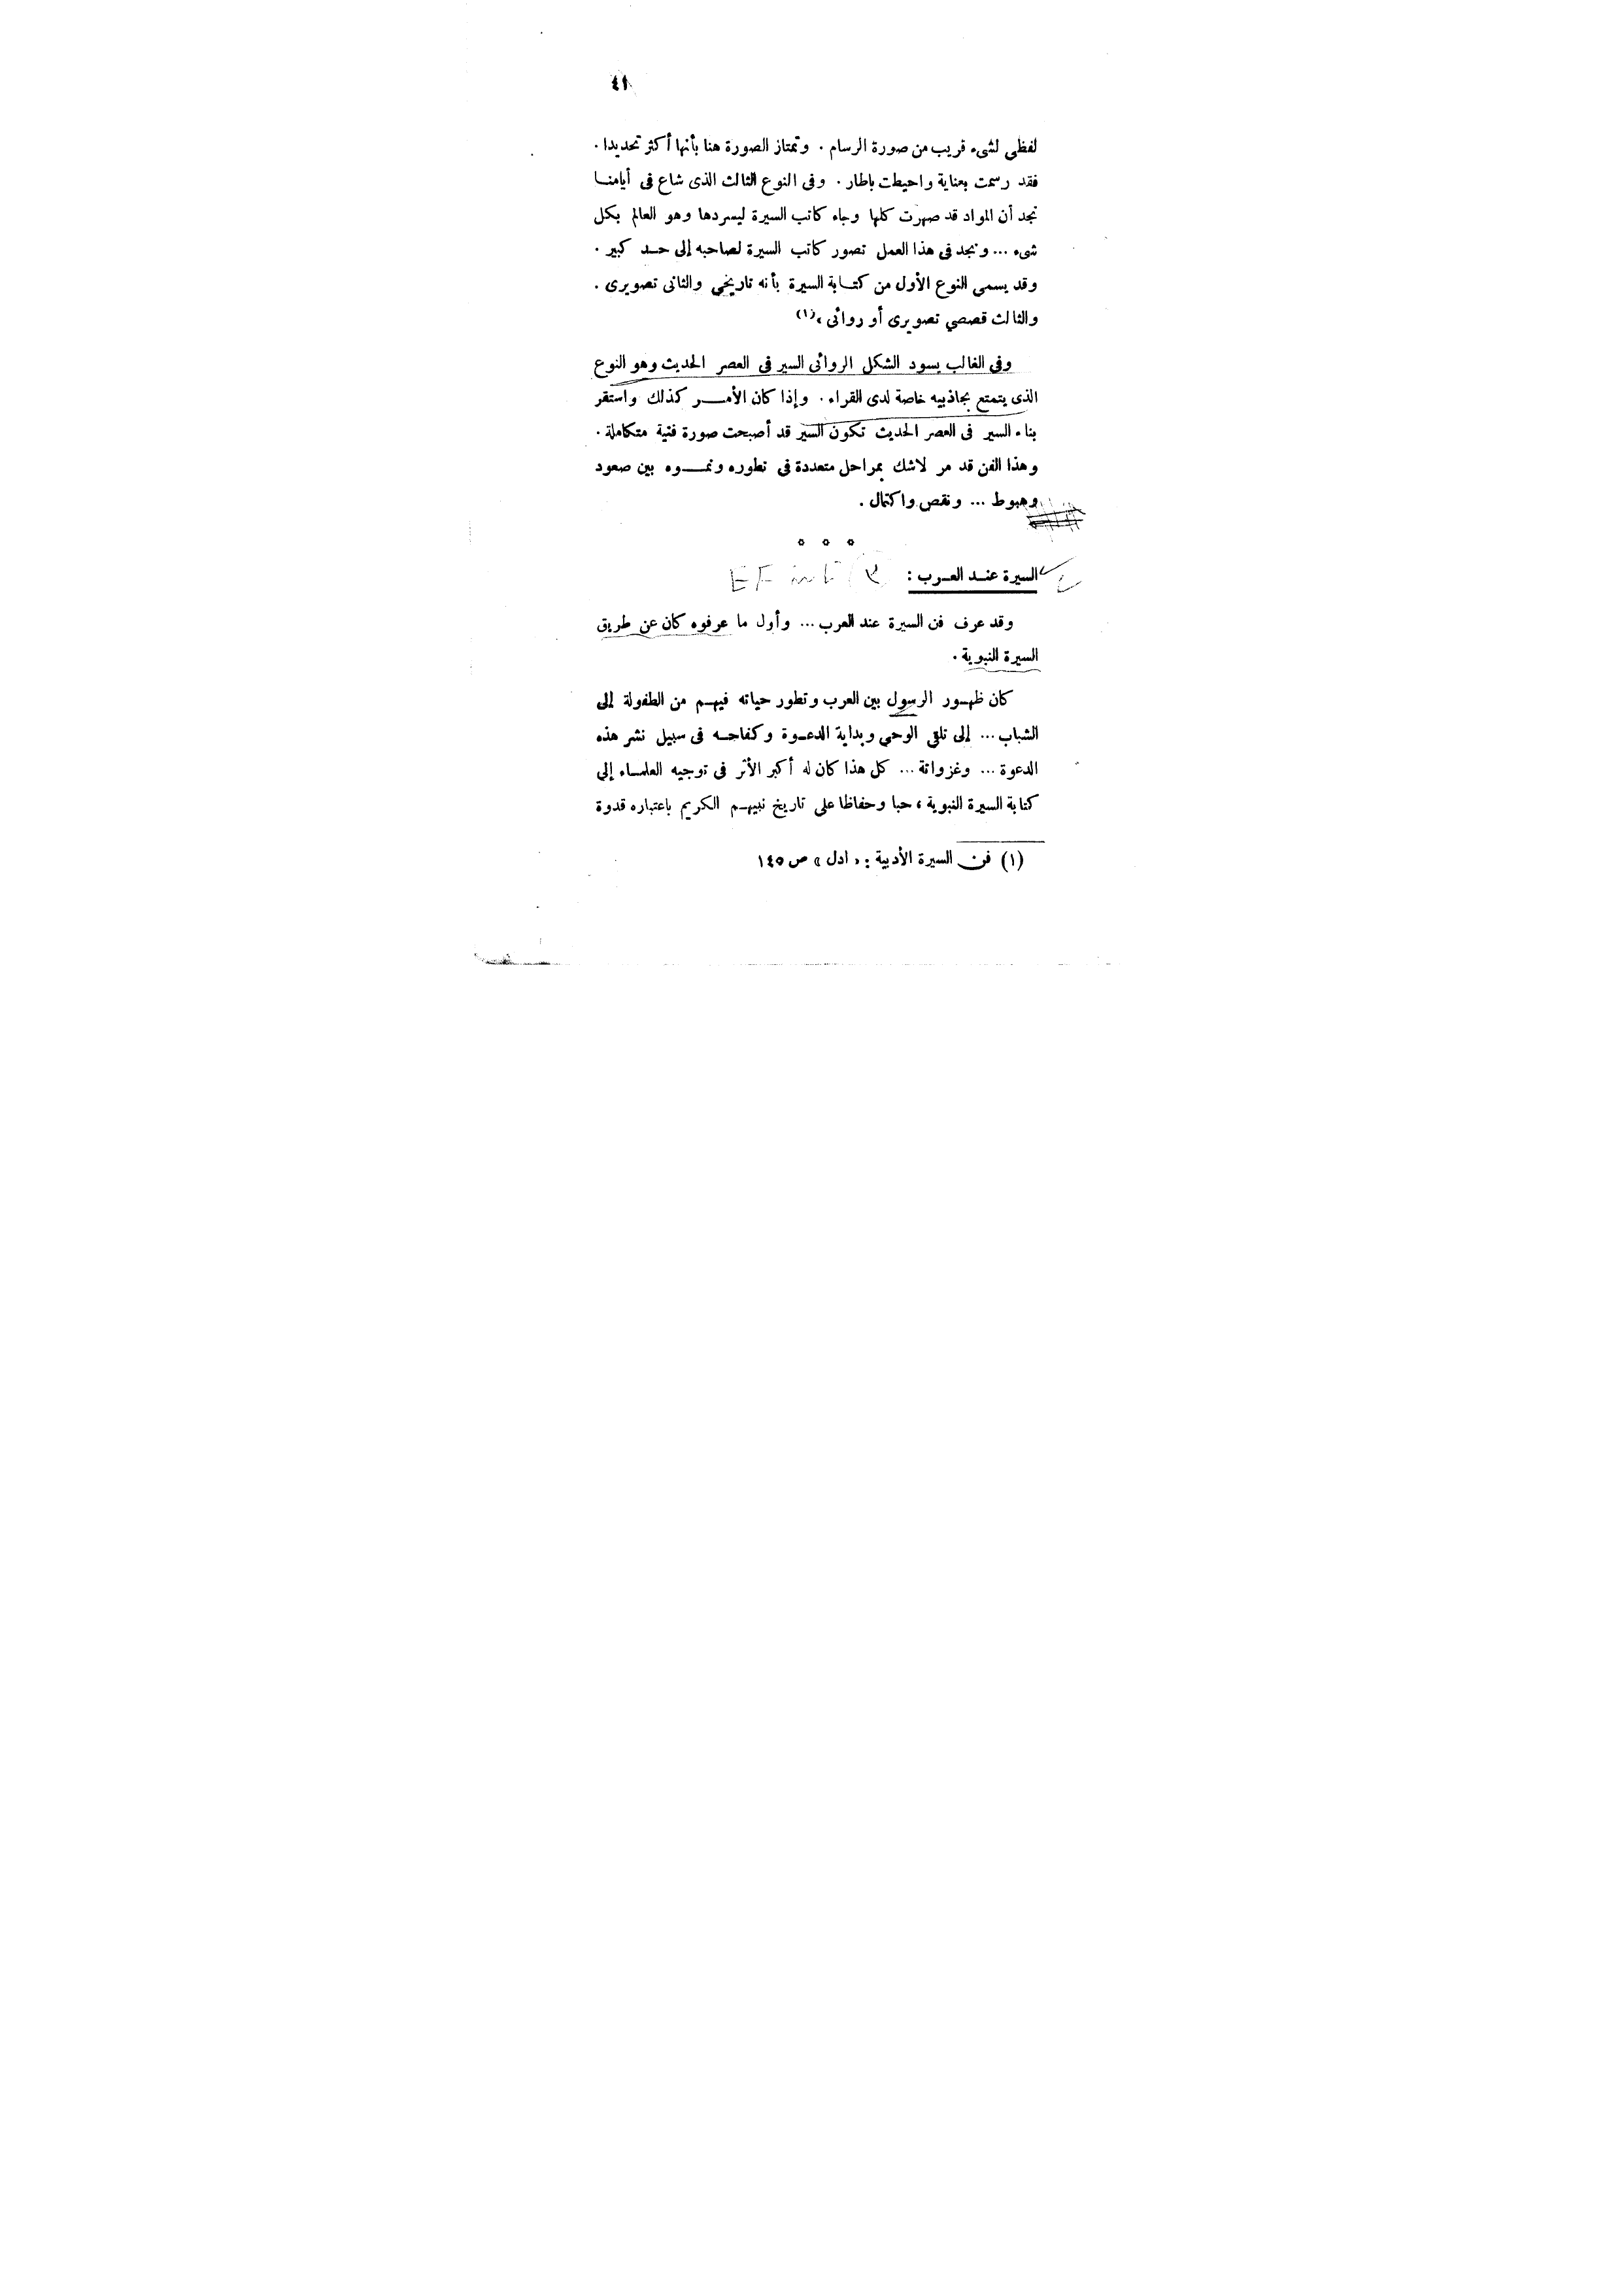 ٤١
لفظي لشىء قريب من صورة الرسام . وتمتاز الصورة هنا بأنها أكثر تحديدا .
فقد رسمت بعناية واحيطت باطار . وفى النوع الثالث الذى شاع فى أيامنا
نجد أن المواد قد صهرت كلها وجاء كاتب السيرة ليسردها وهو العالم بكل
شىء ... ونجد فى هذا العمل تصور كاتب السيرة لصاحبه إلى حد كبير .
وقد يسمى النوع الأول من كتابة السيرة بأنه تاريخي والثانى تصويرى .
والثالث قصصي تصويرى أو روائى »(١)
وفى الغالب يسود الشكل الروائى السير فى العصر الحديث وهو النوع
الذى يتمتع بجاذبيه خاصة لدى القراء . وإذا كان الأمر كذلك واستقر
بناء السير فى العصر الحديث تكون السير قد أصبحت صورة فنية متكاملة .
وهذا الفن قد مر لاشك بمراحل متعددة فى تطوره ونموه بين صعود
وهبوط ... ونقص واكتمال .
السيرة عند العرب :
وقد عرف فن السيرة عند العرب ... وأول ما عرفوه كان عن طريق
السيرة النبوية .
كان ظهور الرسول بين العرب وتطور حياته فيهم من الطفولة إلى
الشباب ... إلى تلقى الوحي وبداية الدعوة وكفاحه فى سبيل نشر هذه
الدعوة ... وغزواتة ... كل هذا كان له أكبر الأثر فى توجيه العلماء إلى
كتابة السيرة النبوية ، حبا وحفاظا على تاريخ نبيهم الكريم باعتباره قدوة
(١) فن السيرة الأدبية : « ادل » ص ١٤٥